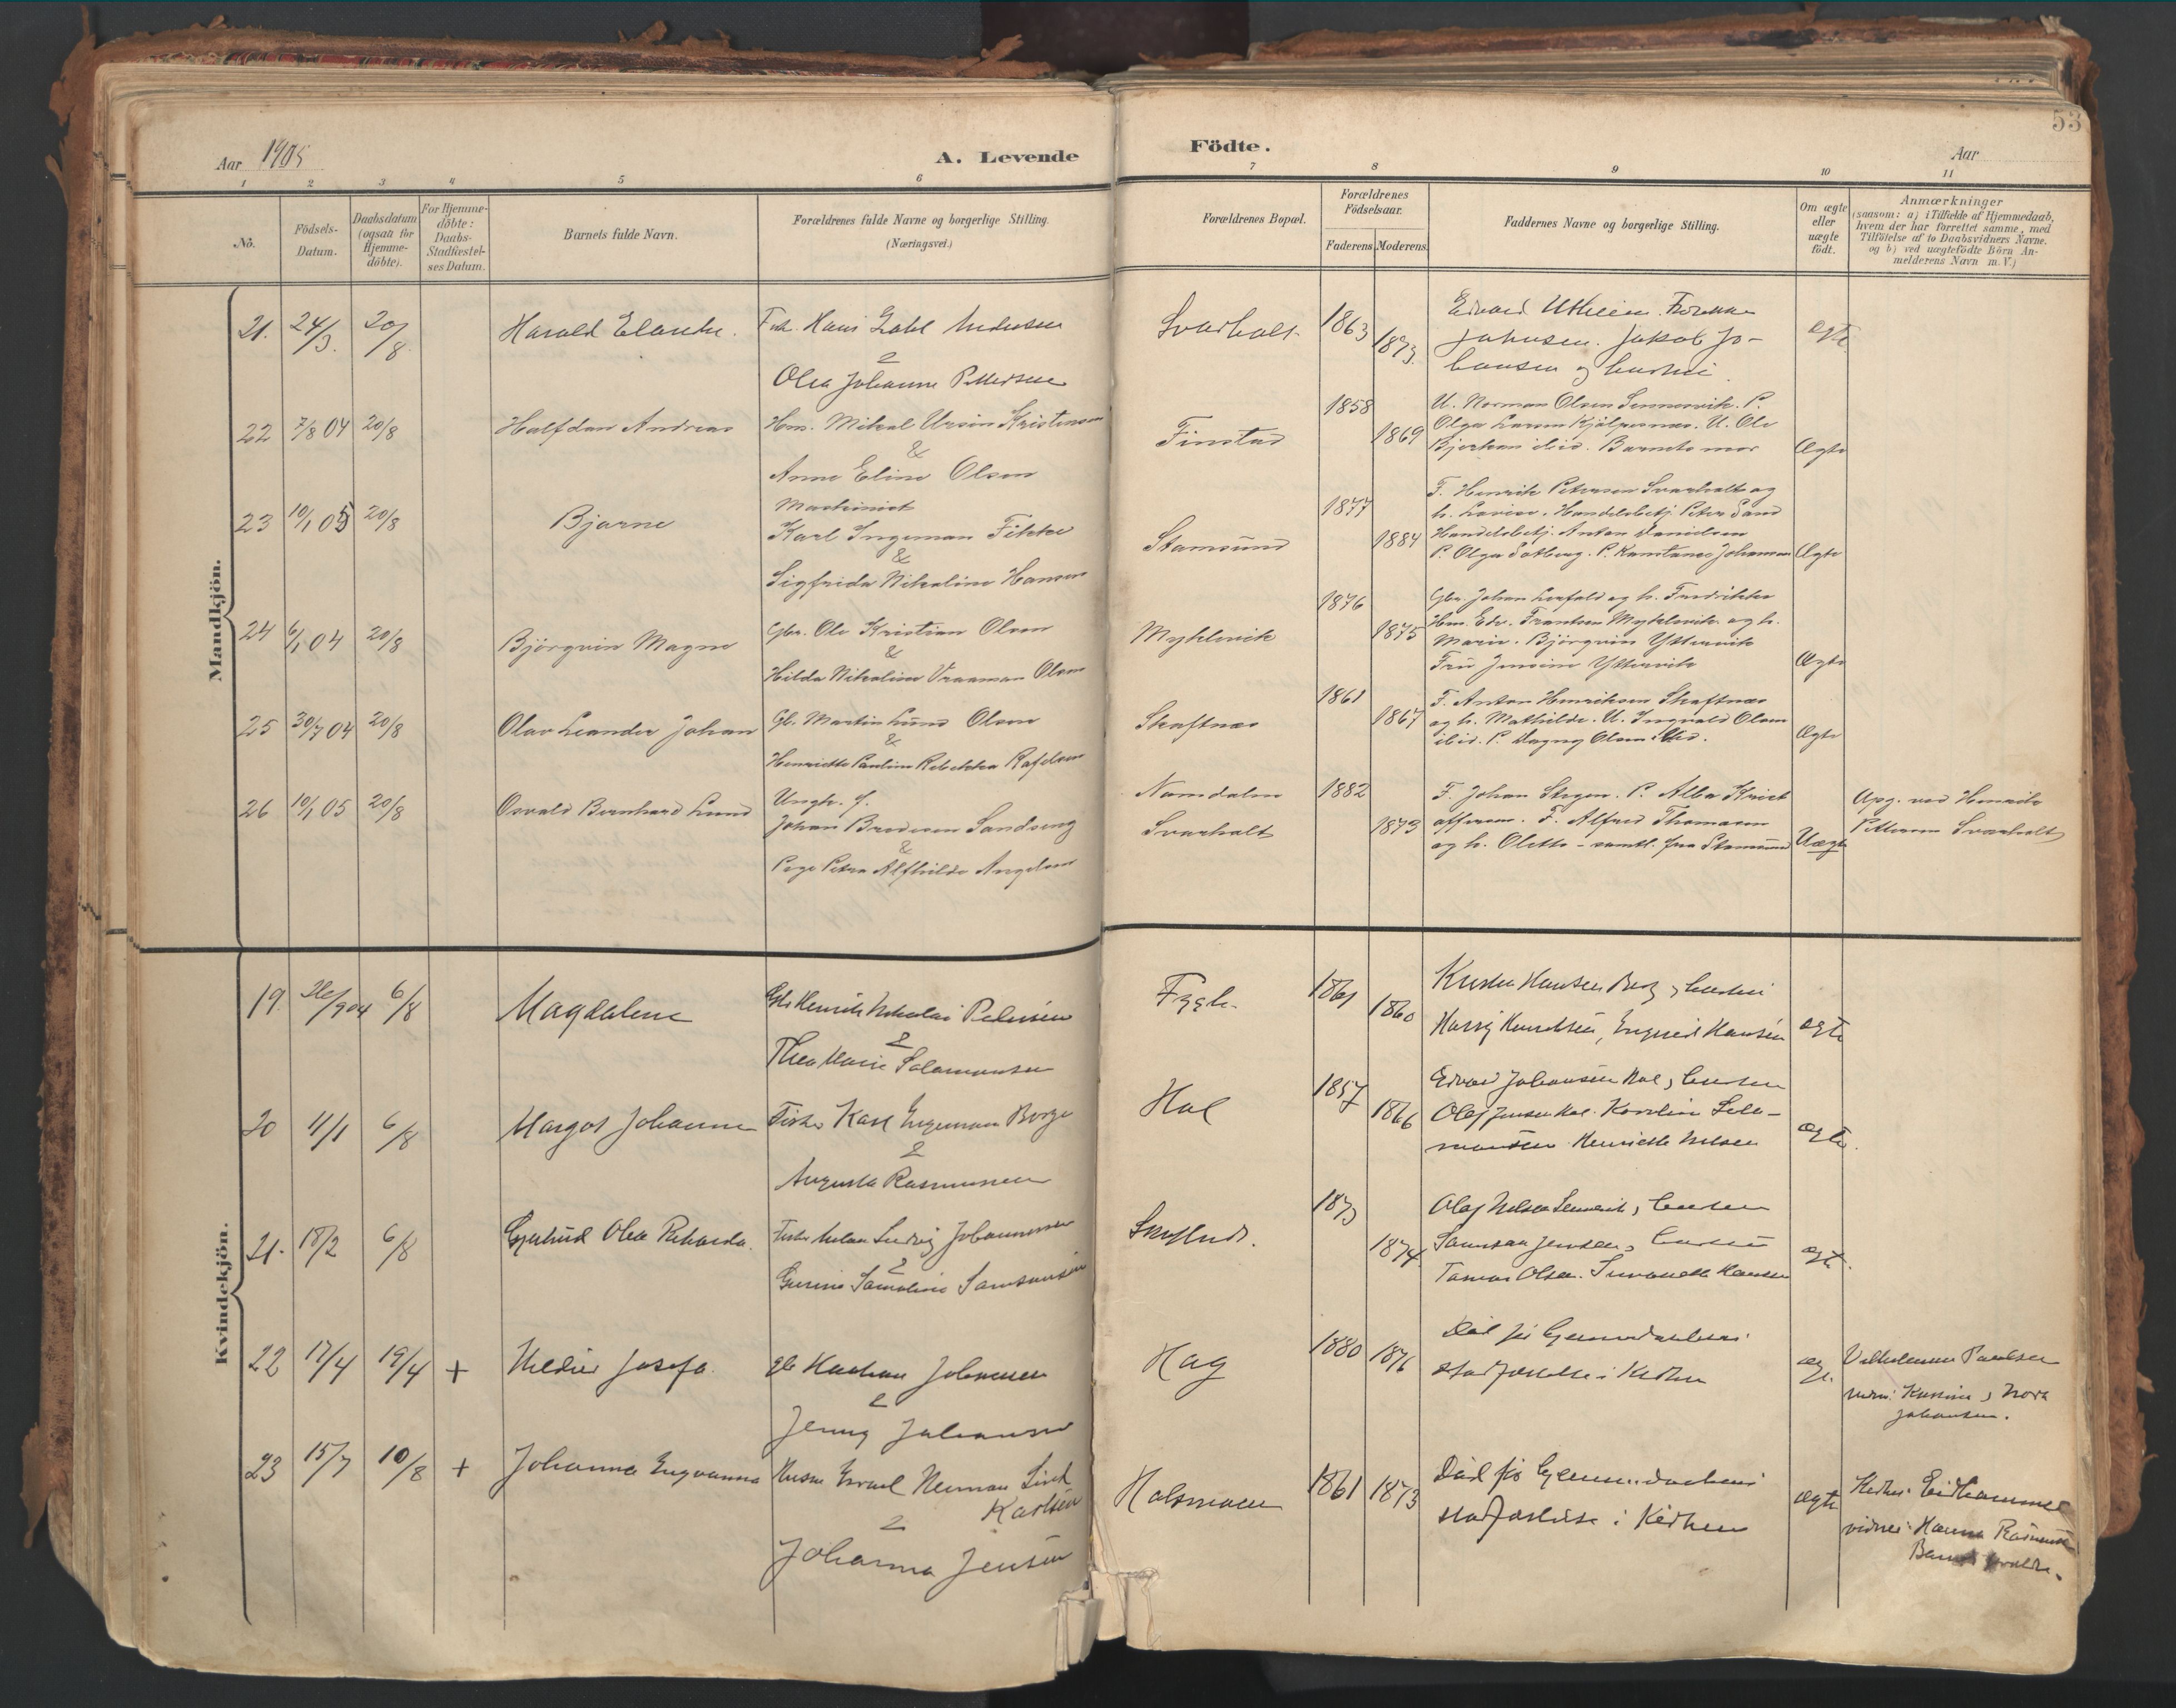 53
Aar 1905
A. Levende
Födte.
Aar
1 2 3 4 5 6 7 8 9 10 11
No.
Födsels-
Datum.
Daabsdatum
(ogsaa for
Hjemme-
döbte).
For Hjemme-
döbte:
Daabs-
Stadfæstel-
ses Datum.
Barnets fulde Navn.
Forældrenes fulde Navne og borgerlige Stilling.
(Næringsvei.)
Forældrenes Bopæl.
Forældrenes
Födselsaar.
Faderens Moderens
Faddernes Navne og borgerlige Stilling.
Om ægte
eller
uægte
födt.
Anmærkninger
(saasom: a) i Tilfælde af Hjemmedaab,
hvem der har forrettet samme, med
Tilföielse af to Daabsvidners Navne.
og b) ved uægtefödte Börn An-
melderens Navn m.V.)
Mandkjön.
21. 24/3. 20/8
Harald
Hans Andersen
&
Olea Johanne Pettersen
Svarholt
1863
1873
Edvard
Johnsen. Jakob Jo-
hansen og hustru
ægte
22 7/8 04 20/8
Halfdan Andreas
Hm. Mikal Ursin Kristensen
&
Anne Eline Olsen
Finstad
1858
1869
U. Norman Olsen Sennesvik. P.
Olga Larsen U. Ole
ibid. Barnets mor
Ægte
23 10/1 05 20/8
Bjarne
Maskinist
Karl Ingeman Fikke
&
Sigfrida Nikoline Hansen
Stamsund
1877
1884
F. Henrik Petersen Svarholt og
h. Lovise. Handelsbetj. Peter Sand
Handelsbetj. Anton Danielsen
P. Olga Solberg. P. Konstanse Johansen
Ægte
24 6/1 04 20/8
Björgvin Magne
Gbr. Ole Kristian Olsen
&
Hilda Nikoline Vraaman Olsen
Myklevik
1876
1875
Gbr. Johan og h. Fredrikke
Hm. Edv. Frantsen Myklevik og h.
Marie. Björgvin Yttervik
Fru Jensine Yttervik
Ægte
25 30/7 04 20/8
Olav Leander Johan
Gb. Martin Lund Olsen
&
Henriette Pauline Rebekka Rafelsen
Skaftnes
1861
1867
F. Anton Henriksen Skaftnes
og h. Mathilde. U. Ingvald Olsen
ibid. P. Dagny Olsen ibid.
Ægte
26 10/1 05 20/8
Osvald Bernhard Lund
Ungk. f.
Johan Brodersen Sandseng
&
Pige Petra Alfhilde Angelsen
Namdalen
Svarholt
1882
1873
F. Johan P. Alba Krist
offersen. F. Alfred Thomasen
og h. Olette - samtl. fra Stamsund
Uægte
Opg. ved Henrik
Petersen Svarholt
Kvindekjön.
19. 26/9 04 6/8
Magdalene
Gb. Henrik Nikolai Pedersen
&
Thea Marie Salamonsen
Fygle.
1861
1860
Hansen Borg, hustru
Knudsen, Hansen
ægte
20 11/1 6/8
Margot Johanne
Fisker Karl Ingeman Borge
&
Augusta Rasmussen
Hol
1857
1866
Edvard Johansen Hol, hustru
Olaf Jensen Hol. Karoline Sala-
monsen Henriette Nilsen
ægte.
21. 18/2 6/8
Gjertrud Olea Rikarda.
Fisker Ludvig Johannessen
&
Samsonsen
1873
1874
Olaf Nilsen hustru
Samson Jensen, hustru
Olsen. Hansen
ægte.
22 17/4 19/4 +
Josefa.
gb. Johansen
&
Jenny Johansen
Hag
1880 1876
Död för hjemmedaabens
stadfæstelse i Kirken
ægte.
Paulsen
vidn: Nora
Johansen.
23 15/7 10/8 +
Johanna Ingvanna
Husm Israel Herman Lind
Karlsen
&
Johanna Jensen
Holsmoen
1861 1873
Död för hjemmedaabens
stadfæstelse i Kirken
ægte
Eidhammer
vidner: Hanna